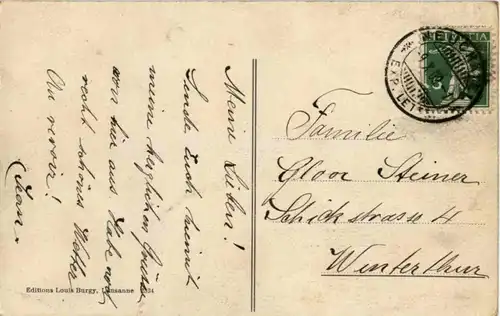 Meine Lieben!
Sende Euch hiermit
meine herzlichen Grüsse
von hier aus. Habe noch
recht schönes Wetter.
Au revoir!
Familie
Gloor Steiner
Schickstrasse 4
Winterthur
HELVETIA
EXP. LET
Editions Louis Burgy, Lausanne